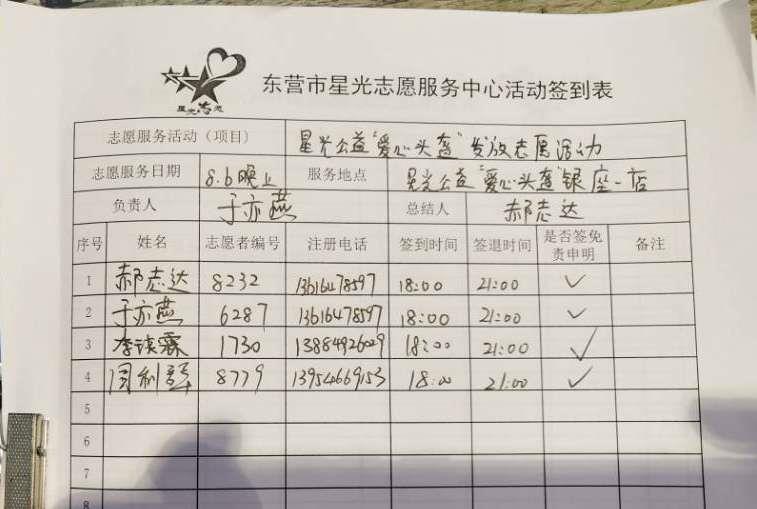 星光志愿
东营市星光志愿服务中心活动签到表
志愿服务活动（项目） 星光公益"爱心头盔"发放志愿活动
志愿服务日期 8.6晚上 服务地点 星光公益"爱心头盔"银座一店
负责人 于亦燕 总结人 郝志达
序号 姓名 志愿者编号 注册电话 签到时间 签退时间 是否签免责申明 备注
1 郝志达 8232 13616478597 18:00 21:00 ✓
2 于亦燕 6287 13616478597 18:00 21:00 ✓
3 李 霖 1730 13884926029 18:00 21:00 ✓
4 周利 8779 13954669153 18:00 21:00 ✓
5
6
7
8